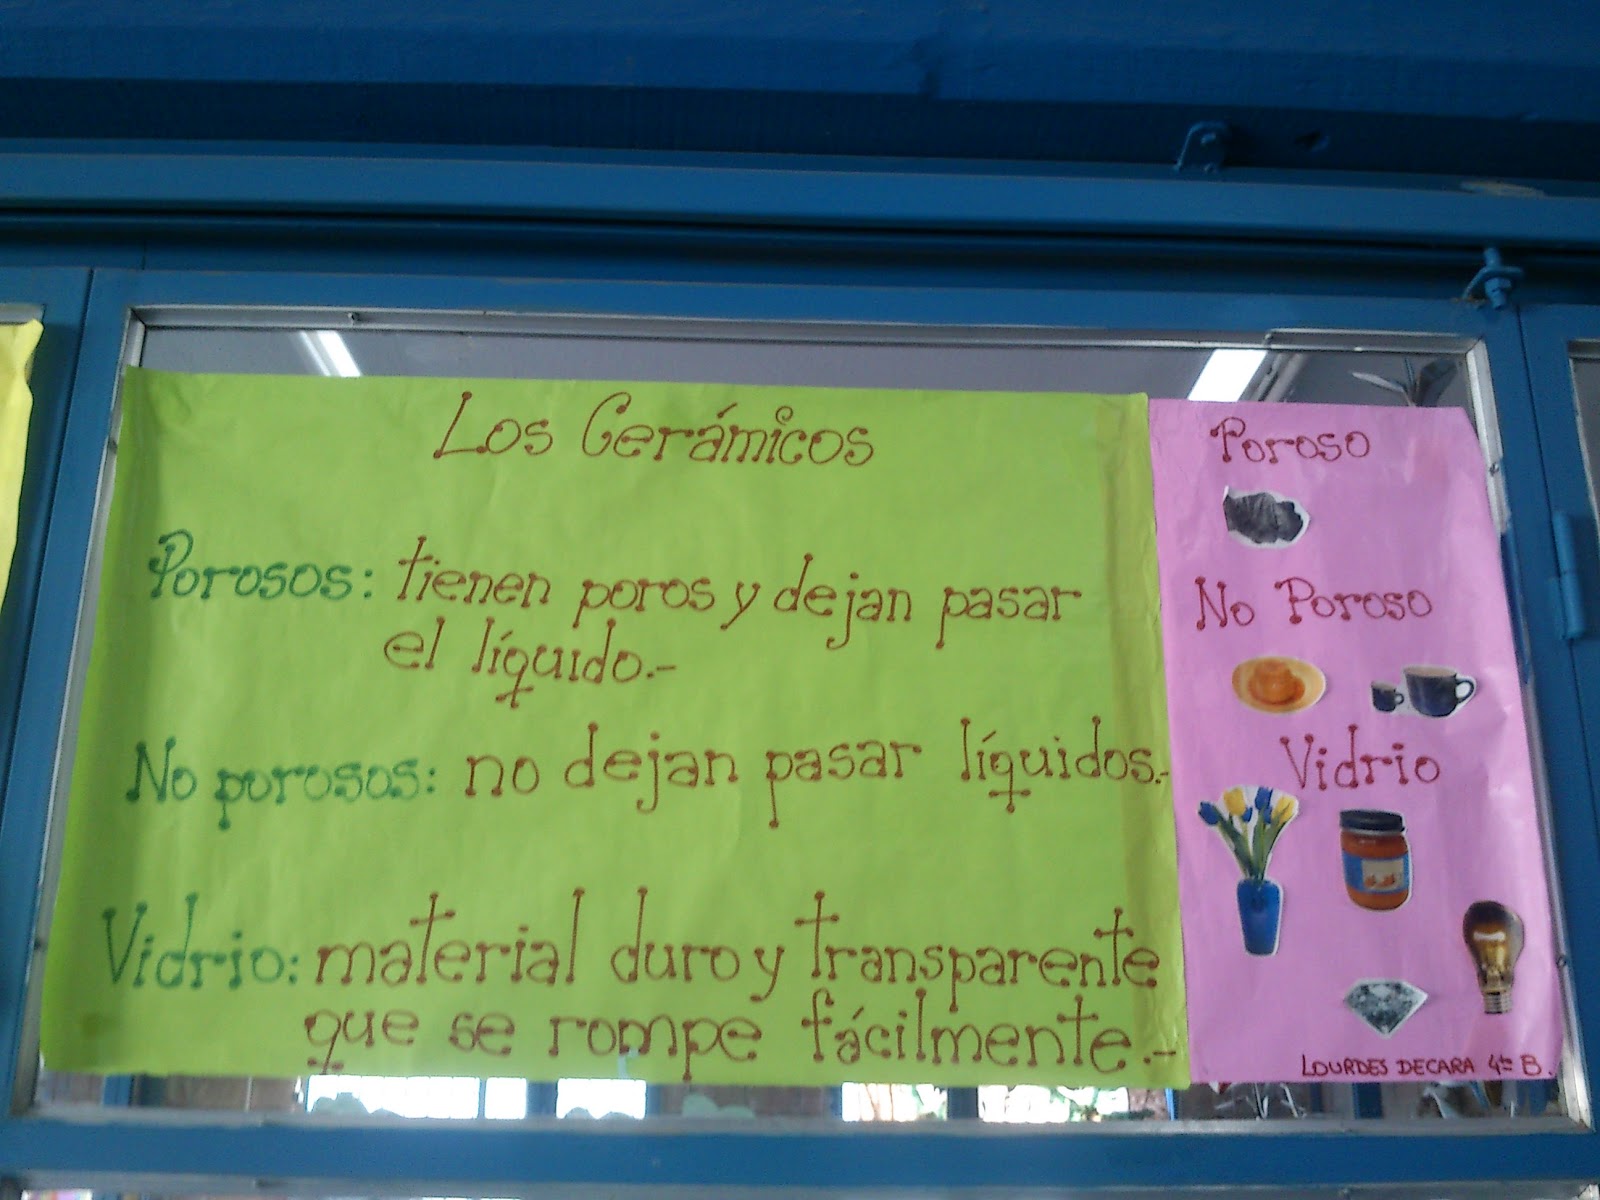 Los Cerámicos
Porosos: tienen poros y dejan pasar
el líquido.-
No porosos: no dejan pasar líquidos.-
Vidrio: material duro y transparente
que se rompe fácilmente.-
Poroso
No Poroso
Vidrio
LOURDES DECARA 4to B.